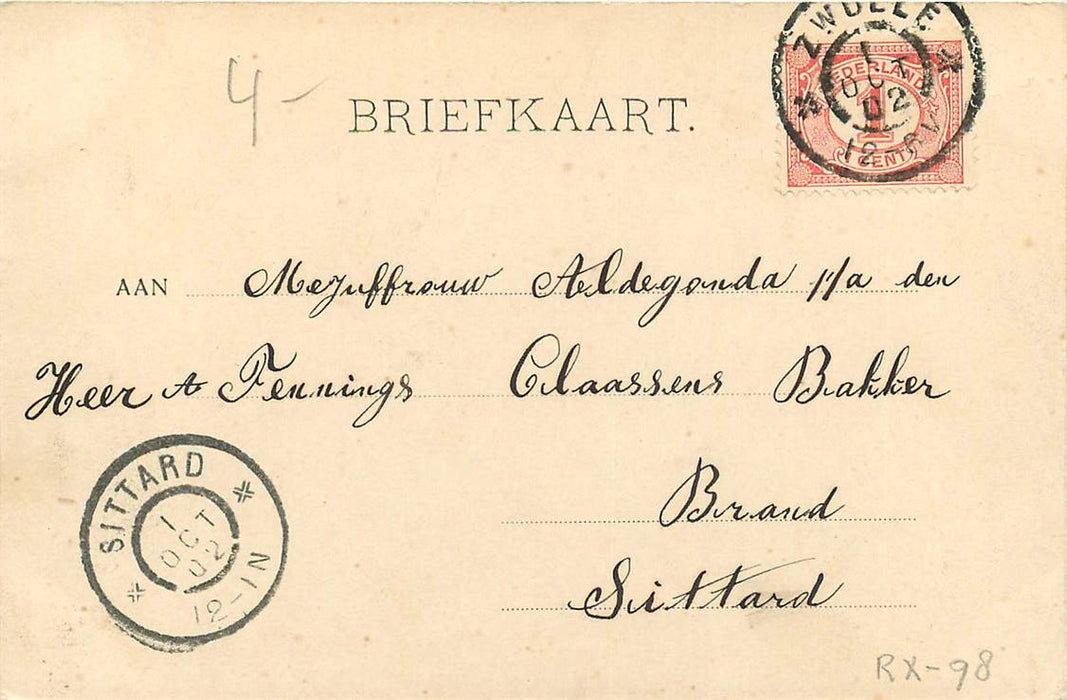 4-
BRIEFKAART.
ZWOLLE
1
OCT
02
12-
NEDERLAND
1
1 CENT
AAN Mejuffrouw Aldegonda p/a den
Heer A Fennings Claassens Bakker
Brand
Sittard
SITTARD
1
OCT
02
12-1N
RX-98